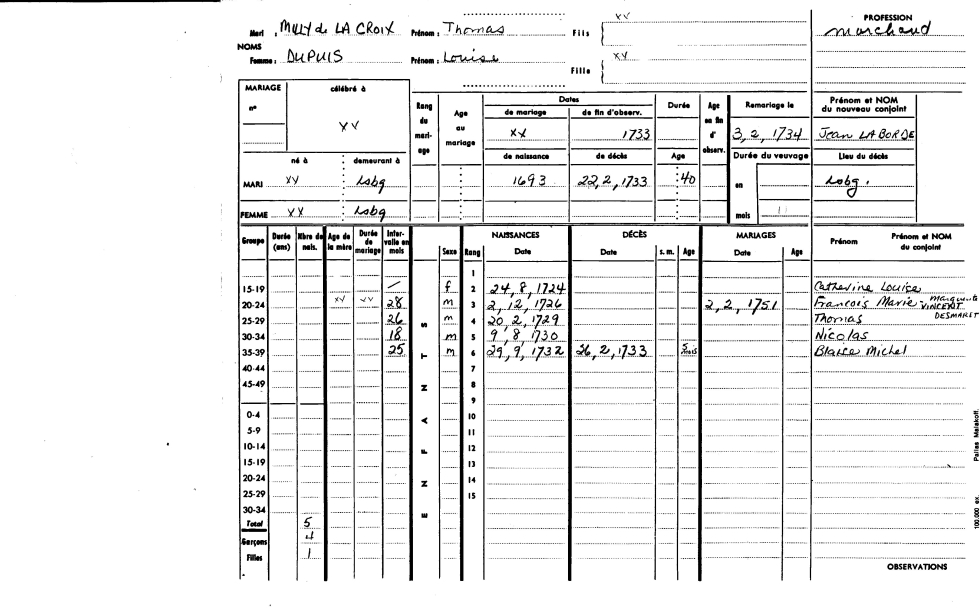 xx PROFESSION
Mari : MILLY de LA CROIX Prénom : Thomas Fils marchand
NOMS
Femme : DUPUIS Prénom : Louise Fille xx
MARIAGE célébré à
n° xx
Rang du mari-age Age au mariage Dates Durée Age en fin d' observ. Remariage le Prénom et NOM du nouveau conjoint
de mariage de fin d'observ.
xx 1733 3, 2, 1734 Jean LABORDE
né à demeurant à de naissance de décès Age Durée du veuvage Lieu du décès
MARI xx Lsbg 1693 22, 2, 1733 40 en Lobg.
FEMME xx Lsbg mois 11
Groupe Durée (ans) Nbre de nais. Age de la mère Durée de mariage Inter-valle en mois ENFANTS Sexe Rang NAISSANCES Date DÉCÈS Date s. m. Age MARIAGES Date Age Prénom Prénom et NOM du conjoint
1
15-19 / f 2 24, 8, 1724 Catherine Louise
20-24 xx xx 28 m 3 2, 12, 1726 2, 2, 1751 Francois Marie Marguerite VINCENT
25-29 26 m 4 20, 2, 1729 Thomas DESMARET
30-34 18 m 5 9, 8, 1730 Nicolas
35-39 25 m 6 29, 9, 1732 26, 2, 1733 5 mois Blaise Michel
40-44 7
45-49 8
9
0-4 10
5-9 11
10-14 12
15-19 13
20-24 14
25-29 15
30-34
Total 5
Garçons 4
Filles 1
OBSERVATIONS
100.000 ex. Pallas Malakoff.